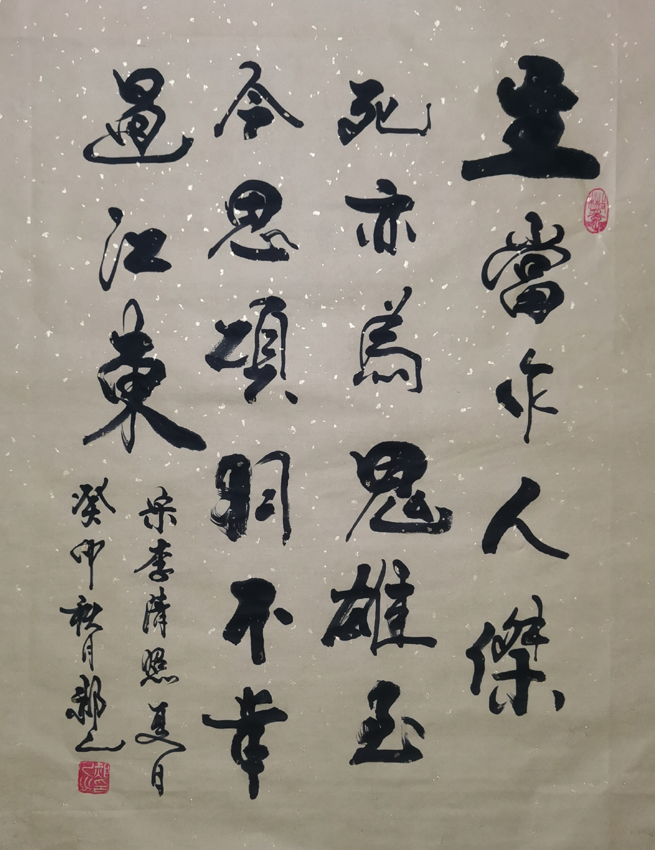 生當作人傑
死亦為鬼雄至
今思項羽不幸
過江東
宋李清照夏日
癸卯秋月郝